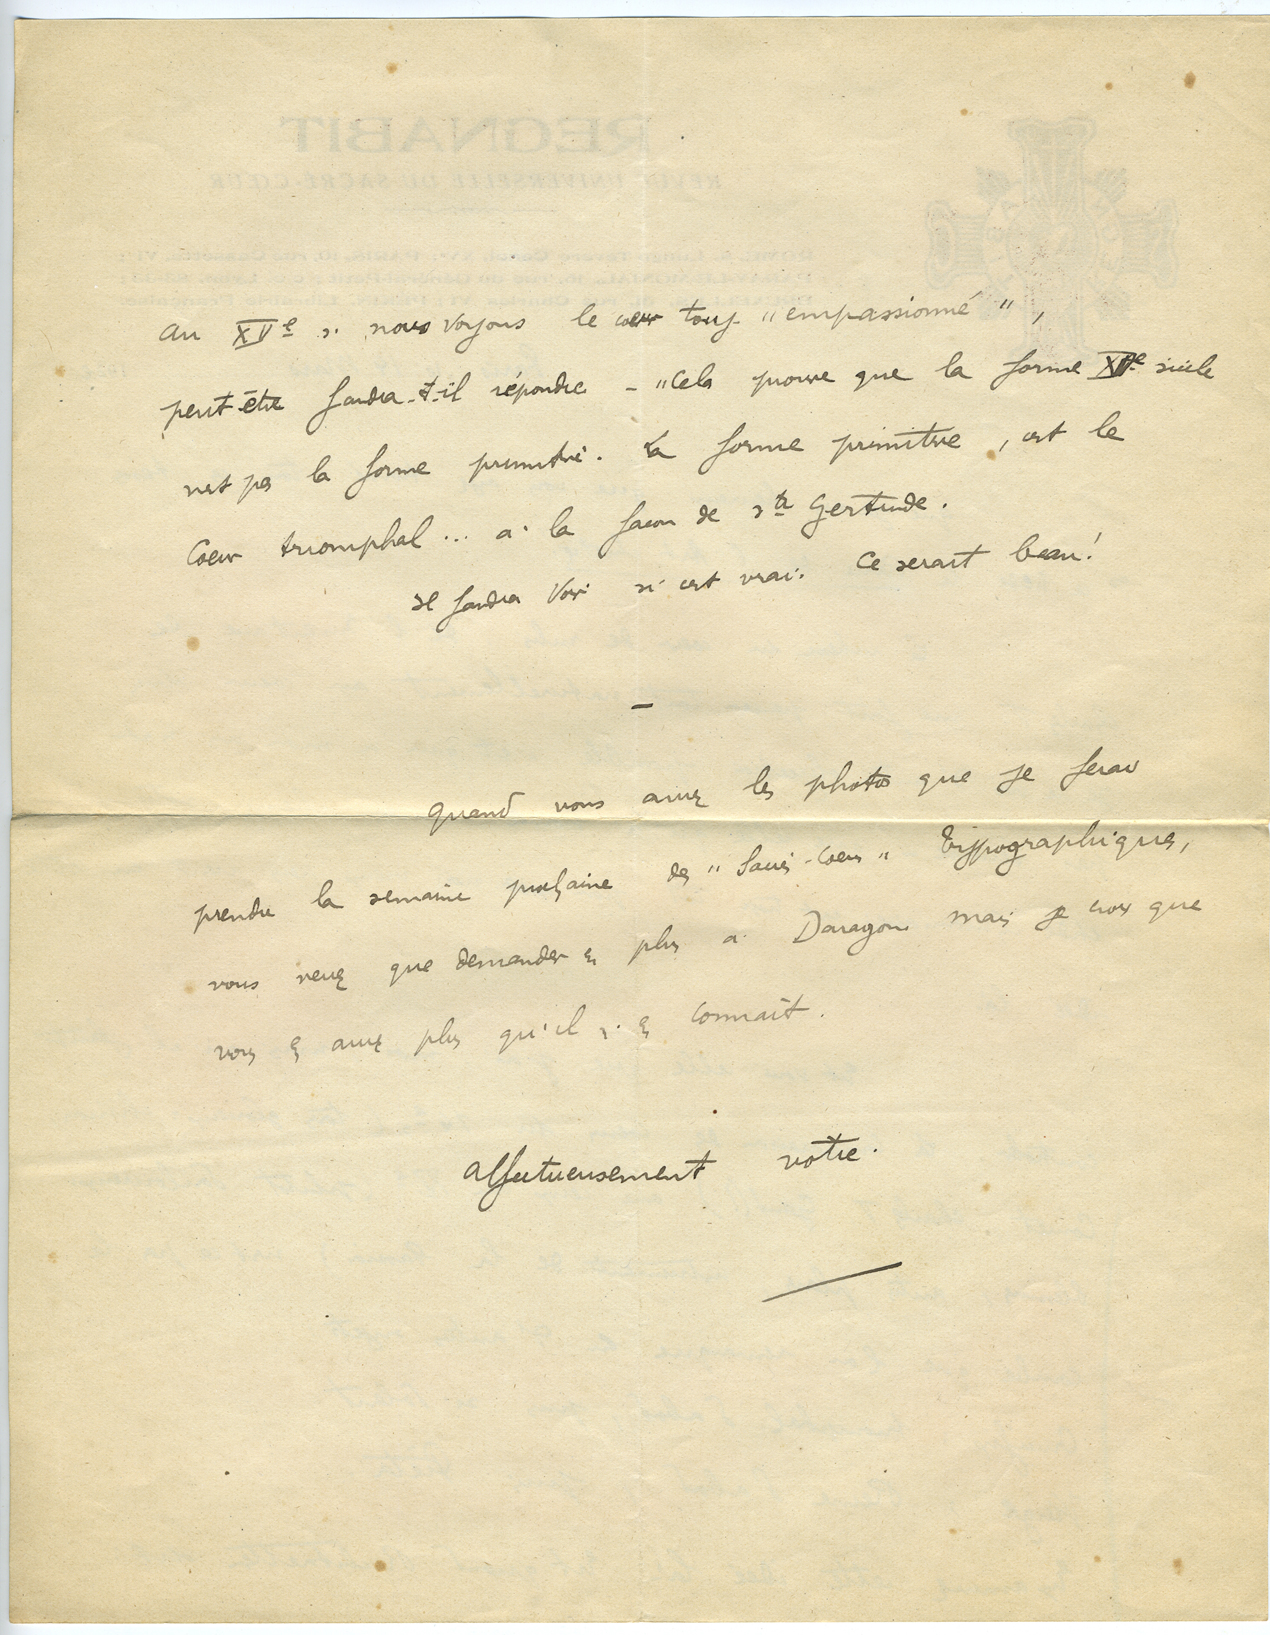 au XVe s. nous voyons le coeur touj. "empassionné",
peut-être faudra-t-il répondre - "Cela prouve que la forme XVe siècle
n'est pas la forme primitive. La forme primitive, c'est le
Coeur triomphal... à la façon de ste Gertrude.
Il faudra voir si c'est vrai. Ce serait beau!
–
Quand vous aurez les photos que je ferai
prendre la semaine prochaine des "Sacrés-Coeurs" typographiques,
vous n'aurez que demander en plus à Daragon mais je crois que
vous en aurez plus qu'il n'en connaît.
Affectueusement vôtre.
REGNABIT
REVUE UNIVERSELLE DU SACRÉ-CŒUR